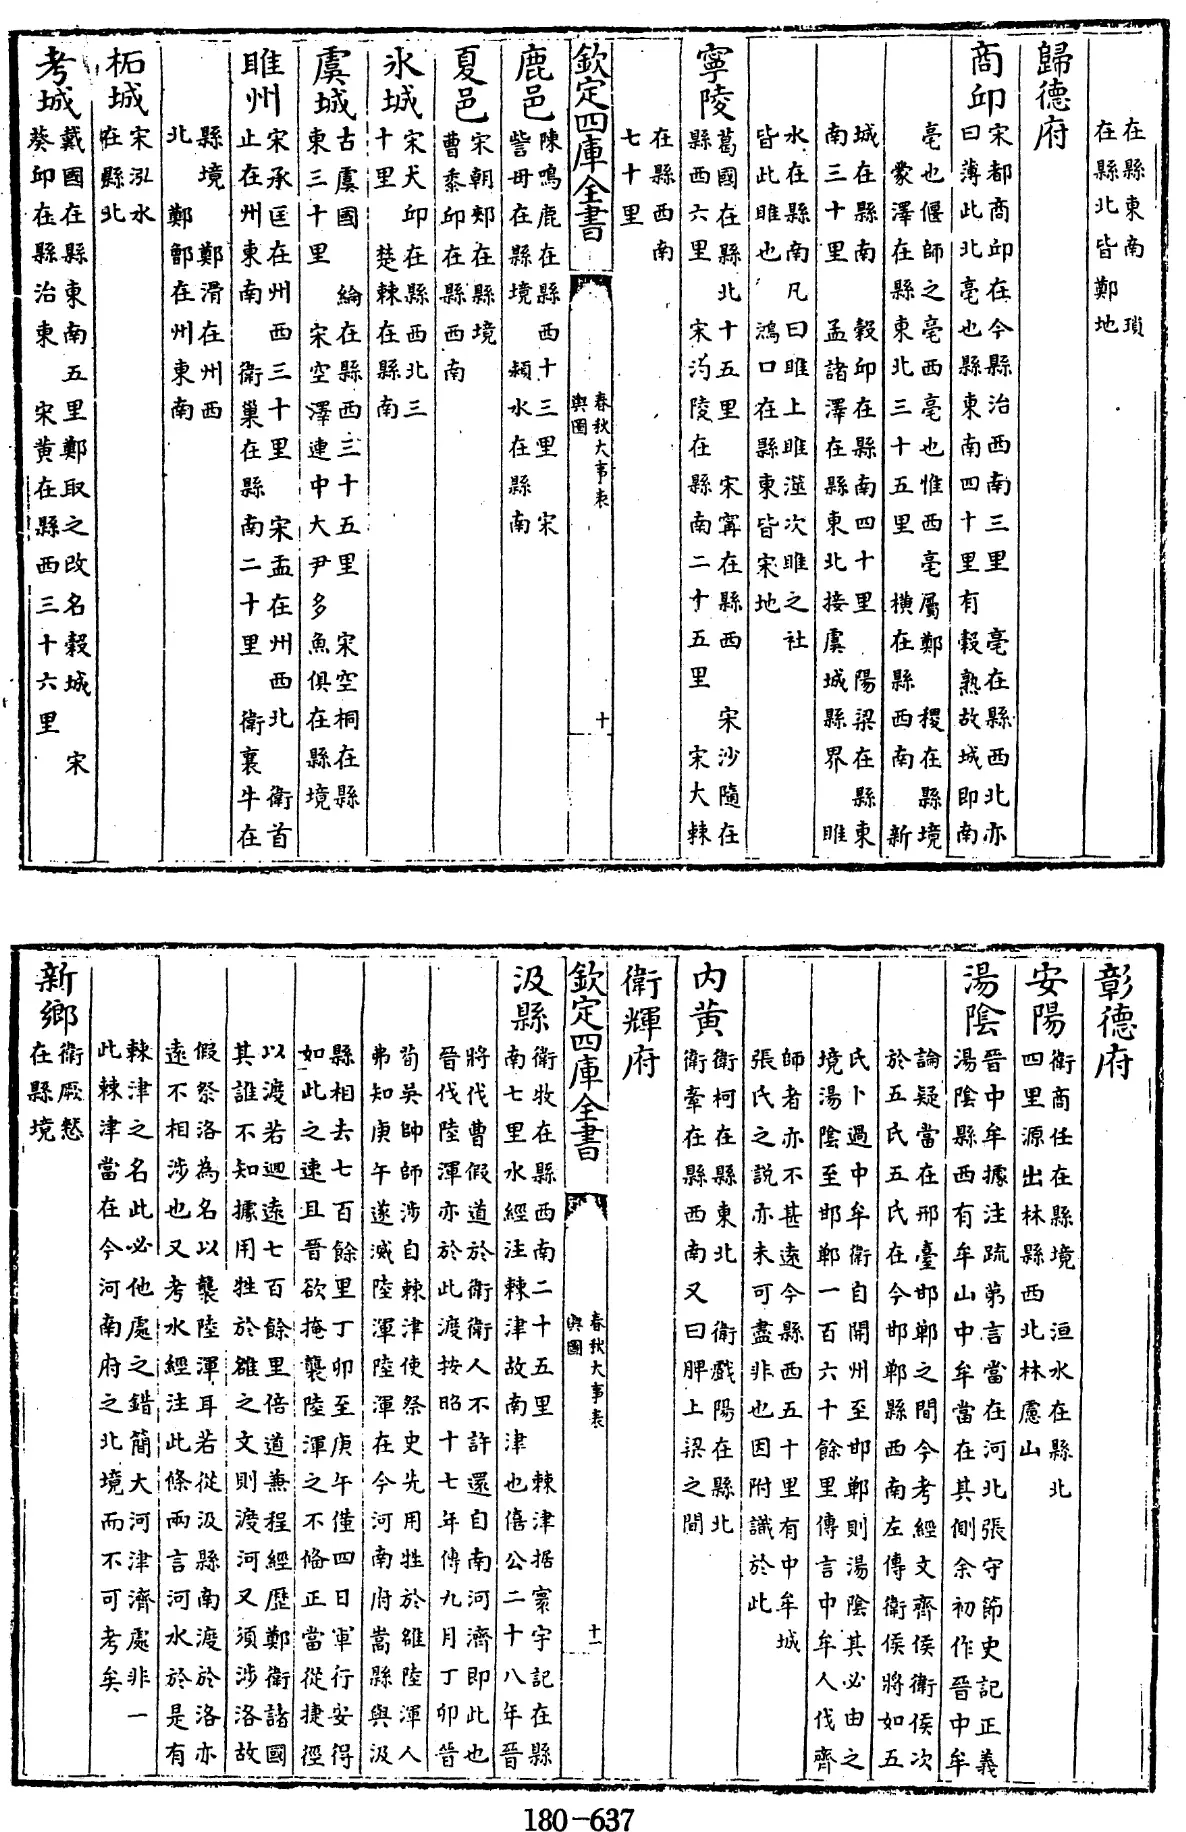 在縣東南　瑣
在縣北皆鄭地
歸德府
商邱
宋都商邱在今縣治西南三里　亳在縣西北亦
曰薄此北亳也縣東南四十里有穀熟故城即南
亳也偃師之亳西亳也惟西亳屬鄭　稷在縣境
蒙澤在縣東北三十五里　橫在縣西南　新
城在縣南　穀邱在縣南四十里　陽梁在縣東
南三十里　孟諸澤在縣東北接虞城縣界　睢
水在縣南凡曰睢上睢澨次睢之社
皆此睢也　鴻口在縣東皆宋地
寧陵
葛國在縣北十五里　宋甯在縣西　宋沙隨在
縣西六里　宋汋陵在縣南二十五里　宋大棘
在縣西南
七十里
欽定四庫全書
春秋大事表
輿圖
十
鹿邑
陳鳴鹿在縣西十三里　宋
訾毋在縣境　潁水在縣南
夏邑
宋朝郟在縣境
曹黍邱在縣西南
永城
宋犬邱在縣西北三
十里　楚棘在縣南
虞城
古虞國　綸在縣西三十五里　宋空桐在縣
東三十里　宋空澤連中大尹多魚俱在縣境
睢州
宋承匡在州西三十里　宋盂在州西北　衛首
止在州東南　衛巢在縣南二十里　衛襄牛在
縣境　鄭滑在州西
北　鄭鄫在州東南
柘城
宋泓水
在縣北
考城
戴國在縣東南五里鄭取之改名穀城　宋
葵邱在縣治東　宋黃在縣西三十六里
彰德府
安陽
衛商任在縣境　洹水在縣北
四里源出林縣西北林慮山
湯陰
晉中牟據注疏第言當在河北張守節史記正義
湯陰縣西有牟山中牟當在其側余初作晉中牟
論疑當在邢臺邯鄲之間今考經文齊侯衛侯次
於五氏五氏在今邯鄲縣西南左傳衛侯將如五
氏卜過中牟衛自開州至邯鄲則湯陰其必由之
境湯陰至邯鄲一百六十餘里傳言中牟人伐齊
師者亦不甚遠今縣西五十里有中牟城
張氏之說亦未可盡非也因附識於此
內黃
衛柯在縣東北　衛戲陽在縣北
衛牽在縣西南又曰脾上梁之間
衛輝府
欽定四庫全書
春秋大事表
輿圖
十一
汲縣
衛牧在縣西南二十五里　棘津据寰宇記在縣
南七里水經注棘津故南津也僖公二十八年晉
將伐曹假道於衛衛人不許還自南河濟即此也
晉伐陸渾亦於此渡按昭十七年傳九月丁卯晉
荀吳帥師涉自棘津使祭史先用牲於雒陸渾人
弗知庚午遂滅陸渾陸渾在今河南府嵩縣與汲
縣相去七百餘里丁卯至庚午僅四日軍行安得
如此之速且晉欲掩襲陸渾之不備正當從捷徑
以渡若迴遠七百餘里倍道兼程經歷鄭衛諸國
其誰不知據用牲於雒之文則渡河又須涉洛故
假祭洛為名以襲陸渾耳若從汲縣南渡於洛亦
遠不相涉也又考水經注此條兩言河水於是有
棘津之名此必他處之錯簡大河津濟處非一
此棘津當在今河南府之北境而不可考矣
新鄉
衛厥憖
在縣境
180-637